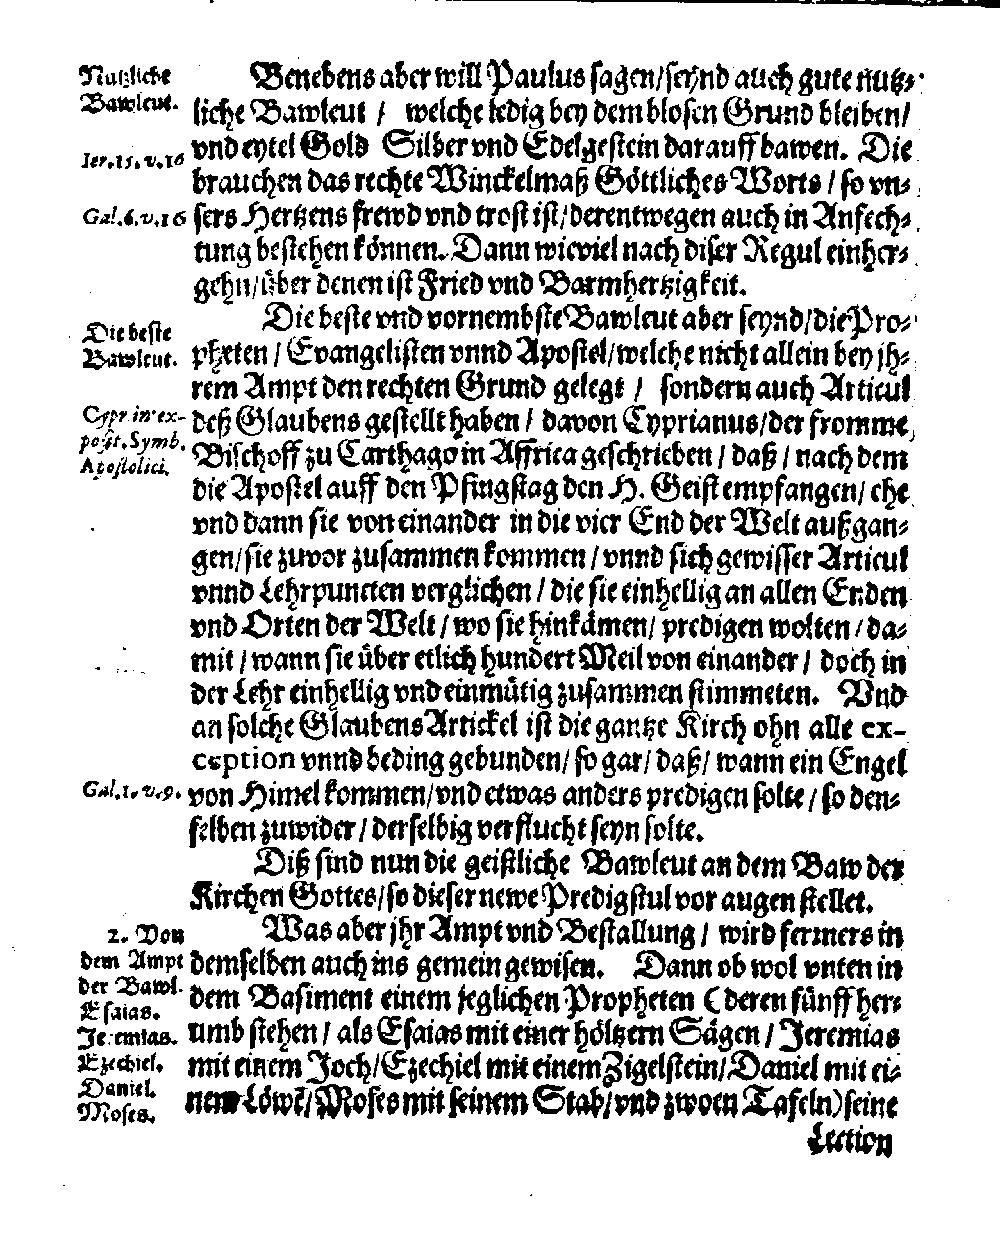 Nutzliche
Bawleut.
Benebens aber will Paulus sagen/seynd auch gute nutz-
liche Bawleut / welche ledig bey dem blosen Grund bleiben/
Ier.15.v.16
vnd eytel Gold Silber vnd Edelgestein darauff bawen. Die
brauchen das rechte Winckelmaß Göttliches Worts / so vn-
Gal.6.v.16
sers Hertzens frewd vnd trost ist/derentwegen auch in Anfech-
tung bestehen können. Dann wieviel nach diser Regul einher-
gehn/über denen ist Fried vnd Barmhertzigkeit.
Die beste
Bawleut.
Die beste vnd vornembste Bawleut aber seynd/die Pro-
pheten / Evangelisten vnnd Apostel/welche nicht allein bey jh-
rem Ampt den rechten Grund gelegt / sondern auch Articul
Cypr in ex-
post. Symb.
Apostolici.
deß Glaubens gestellt haben / davon Cyprianus/der fromme
Bischoff zu Carthago in Affrica geschrieben / daß / nach dem
die Apostel auff den Pfingstag den H. Geist empfangen/ ehe
vnd dann sie von einander in die vier End der Welt außgan-
gen/sie zuvor zusammen kommen / vnnd sich gewisser Articul
vnnd Lehrpuncten verglichen / die sie einhellig an allen Enden
vnd Orten der Welt / wo sie hinkämen/ predigen wolten / da-
mit / wann sie über etlich hundert Meil von einander / doch in
der Lehr einhellig vnd einmütig zusammen stimmeten. Vnd
an solche Glaubens Artickel ist die gantze Kirch ohn alle ex-
ception vnnd beding gebunden/ so gar/ daß/ wann ein Engel
Gal.1.v.9.
von Himel kommen/vnd etwas anders predigen solte / so den-
selben zuwider / derselbig verflucht seyn solte.
Diß sind nun die geistliche Bawleut an dem Baw der
Kirchen Gottes/so dieser newe Predigstul vor augen stellet.
2. Von
dem Ampt
der Bawl.
Esaias.
Jeremias.
Ezechiel.
Daniel.
Moses.
Was aber jhr Ampt vnd Bestallung / wird ferners in
demselben auch ins gemein gewisen. Dann ob wol vnten in
dem Basiment einem jeglichen Propheten (deren fünff her-
umb stehen / als Esaias mit einer höltzern Sägen / Jeremias
mit einem Joch/Ezechiel mit einem Zigelstein/Daniel mit ei-
nem Löwē/Moses mit seinem Stab/vnd zwoen Tafeln) seine
Lection